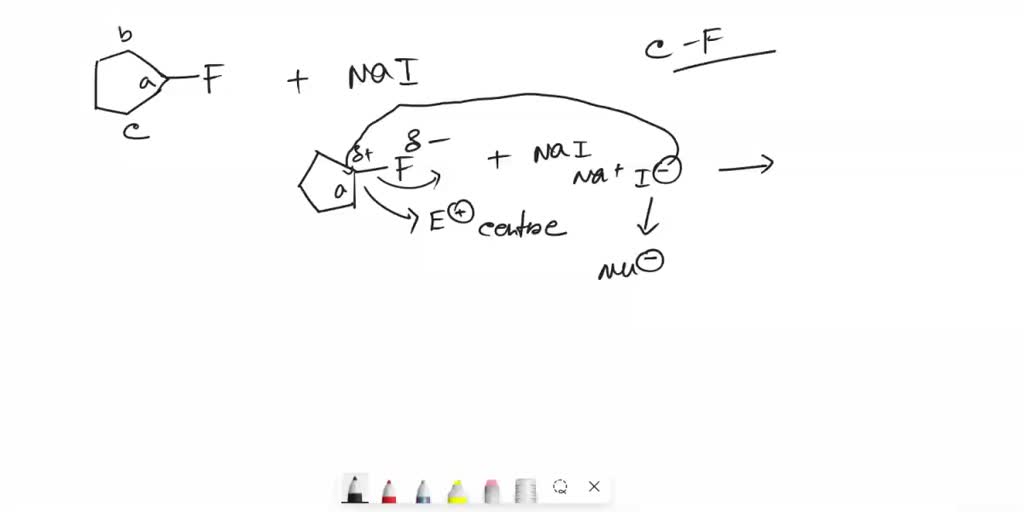 b
a F + NaI C-F
c
δ+ δ-
a F + NaI
Na+ I⊖ →
E⊕ centre
Nu⊖